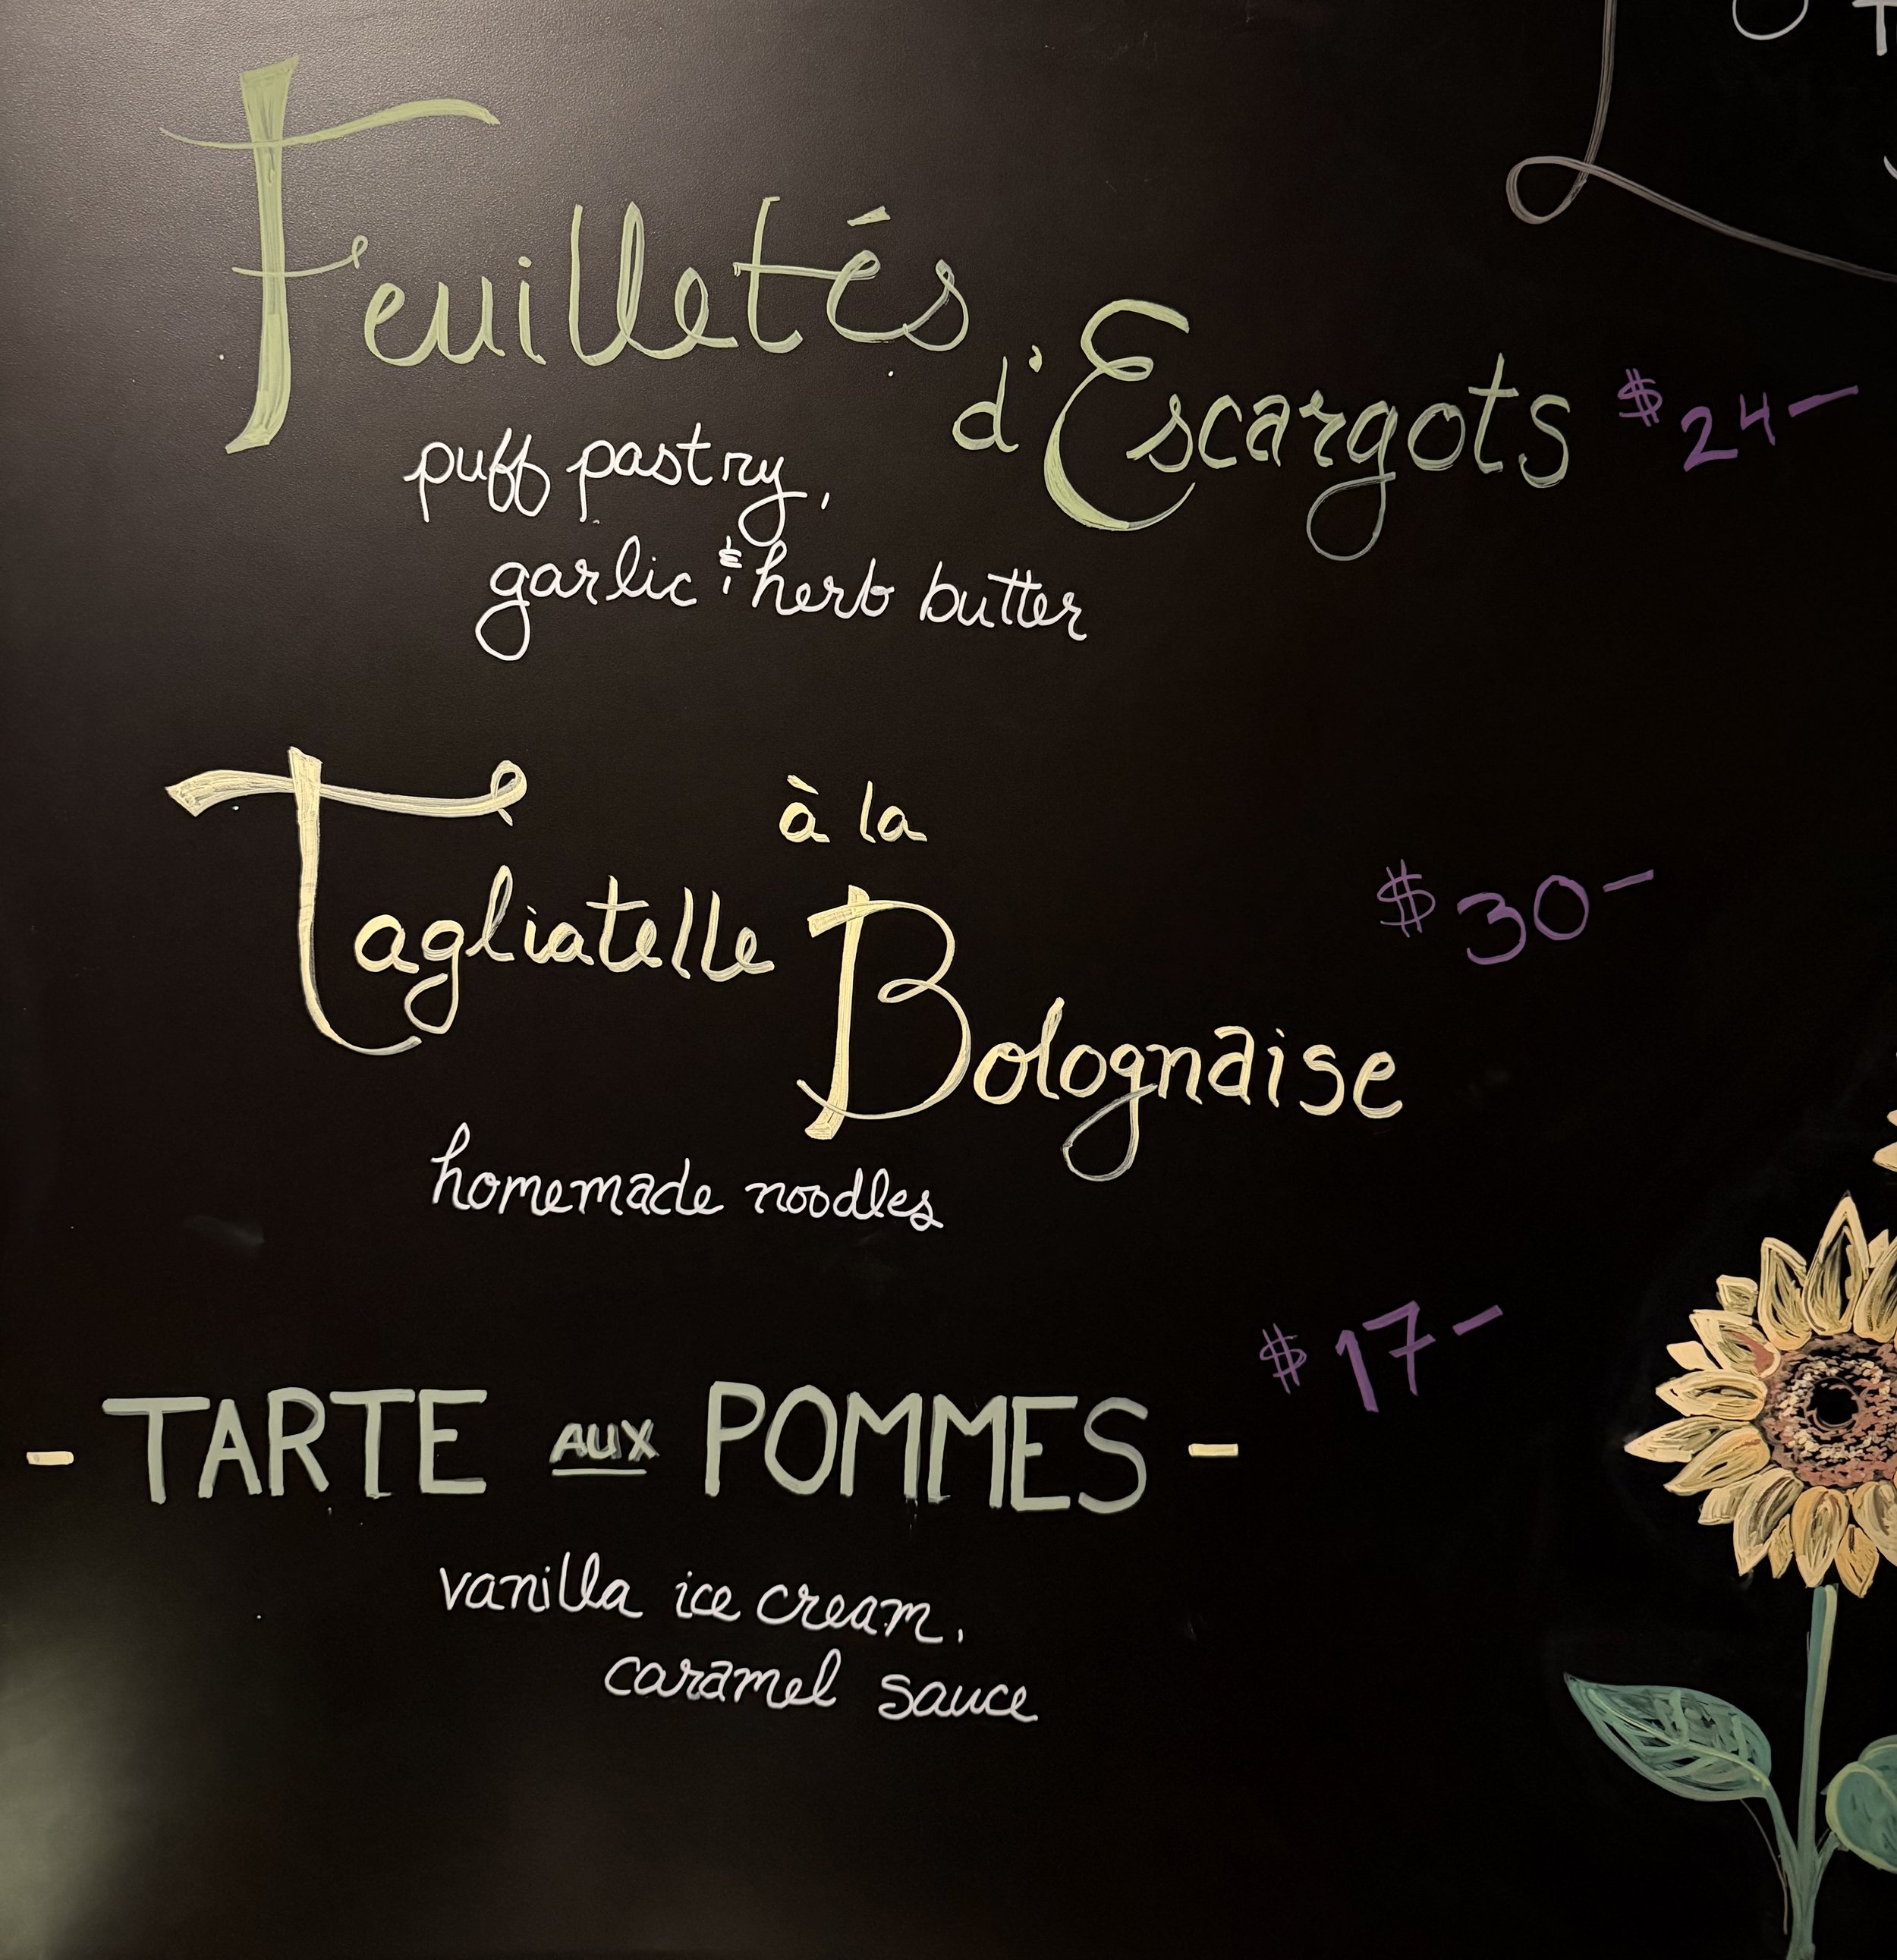 Feuilletés
d'Escargots $24-
puff pastry,
garlic & herb butter
Tagliatelle à la
Bolognaise $30-
homemade noodles
$17-
- TARTE AUX POMMES -
vanilla ice cream,
caramel sauce